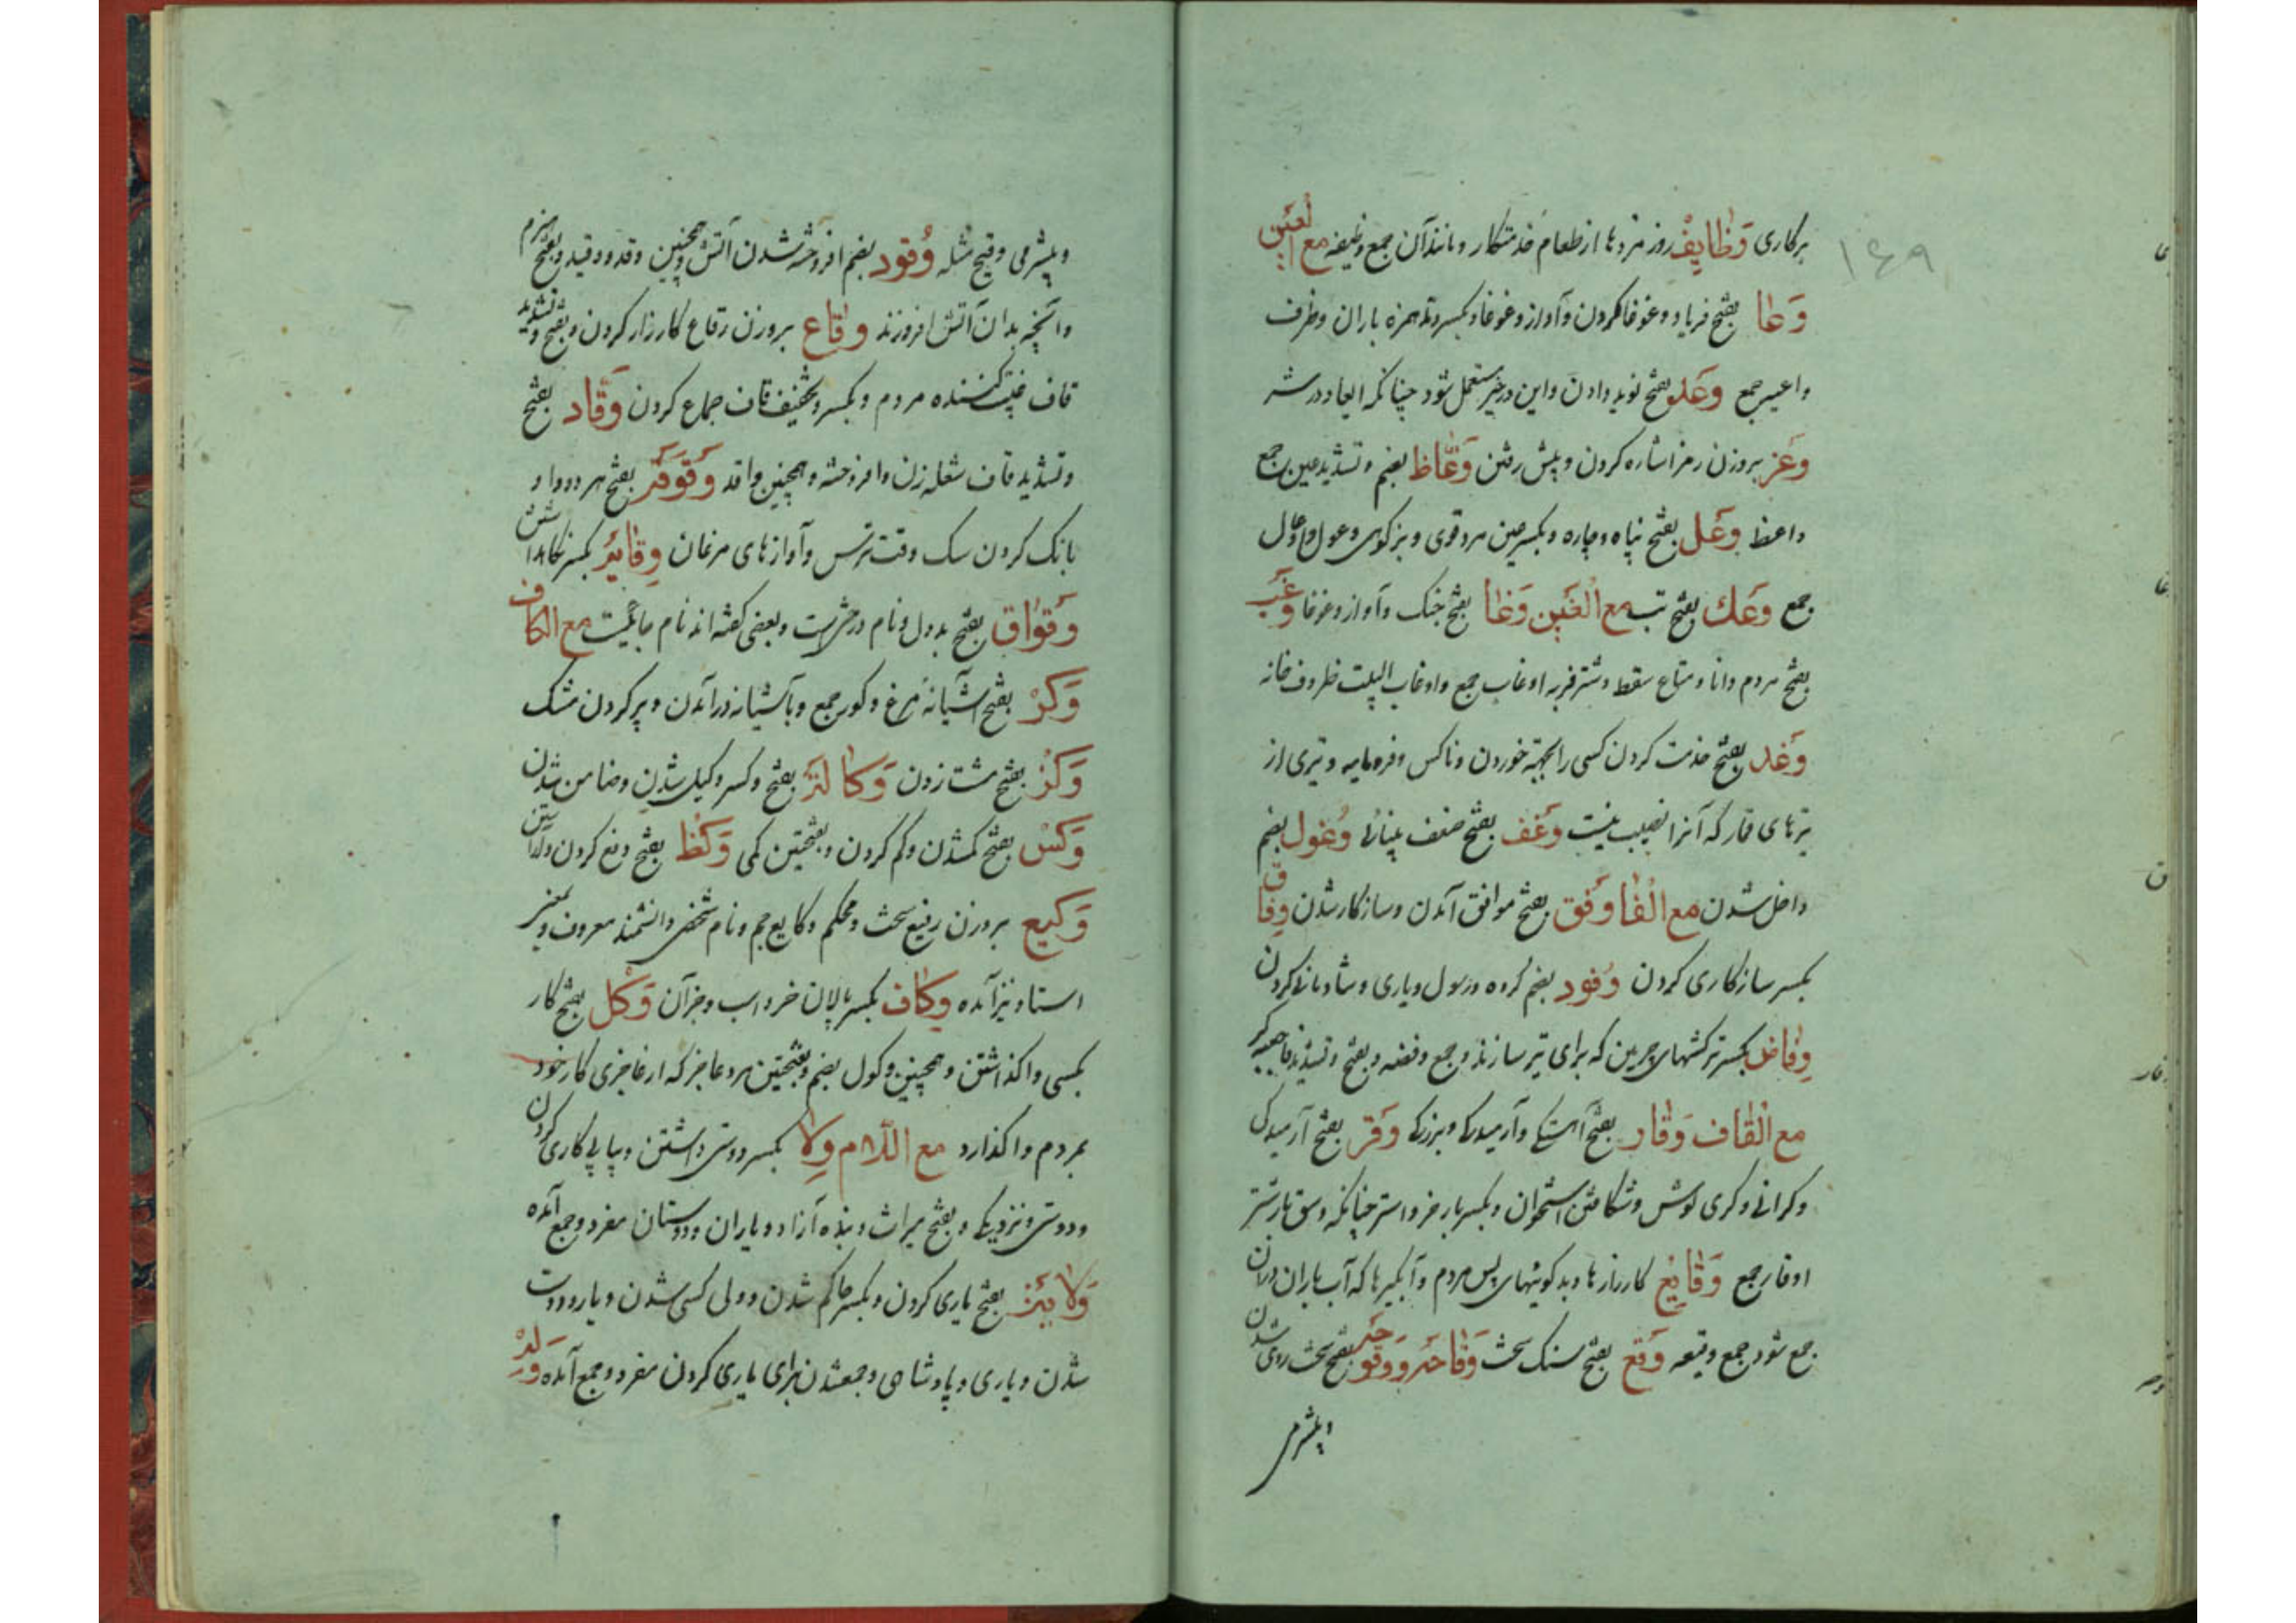 ۱۴۹
برکاری وَظایِفْ روز مزدها از طعام خدمتکار و مانند آن جمع وظیفه مع العَین
وَعا بفتح فریاد و غوغا کردن و آواز و غوغا و بکسر و مد همزه باران و ظرف
واعیه جمع وَعَد بفتح نوید دادن و این در خیر مستعمل شود چنانکه ایعاد در شر
وَعَز بروزن رمز اشاره کردن و پیش رفتن وَعّاظ بضم و تشدید عین جمع
واعظ وَعَل بفتح پناه و چاره و بکسر عین مرد قوی و بز کوهی وعول واوعال
جمع وَعَك بفتح تب مع الغَین وَغا بفتح جنک و آواز و غوغا وغَب
بفتح مردم دانا و متاع سقط و شتر فربه اوغاب جمع و اوغاب البیت ظروف خانه
وَغَد بفتح خدمت کردن کسی را بجهة خوردن و ناکس و فرومایه و تیری از
تیرهای قمار که آنرا نصیب نیست وَغَف بفتح ضعف بینائی وُغول بضم
داخل شدن مع الفا وَفق بفتح موافق آمدن و سازکار شدن وِفاق
بکسر سازکاری کردن وُفود بضم کروه و رسول و یاری و شادمانی کردن
وِفاض بکسر ترکشهای چرمین که برای تیر سازند و جمع وفضه و بفتح و تشدید فا
مع القاف وَقار بفتح آهستکی و آرمیدکی و بزرکی وَقَر بفتح آرمیدکی
و کرانی و کری کوش و شکافتن استخوان و بکسر بار خر و استر چنانکه وسق بار شتر
اوقار جمع وَقایِع کارزارها و بدکوئیهای پس مردم و آبکیرها که آب باران دران
جمع شود جمع وقیعه وَقع بفتح سنک سخت وَقاحَه و وَقوحَه بفتح سخت روی شدن
و بیشرمی
و بیشرمی وقیح مثله وُقود بضم افروخته شدن آتش و همچنین وقد و وقید و بفتح هیزم
و آنچه بدان آتش افروزند وِقاع بروزن رقاع کارزار کردن و بفتح و تشدید
قاف غیبت کننده مردم و بکسر و تخفیف قاف جماع کردن وَقّاد بفتح
و تشدید قاف شعله زن و افروخته و همچنین واقد وَقوَقَه بفتح هر دو واو
بانک کردن سک وقت ترس و آوازهای مرغان وِقایَه بکسر نکاه داشتن
وَقواق بفتح بددل و نام درختی است و بعضی کفته اند نام جائیست مع الکاف
وَکَرْ بفتح آشیانه مرغ وکور جمع و بآشیانه درآمدن و پر کردن مشک
وَکَز بفتح مشت زدن وَکالَت بفتح و کسر وکیل شدن و ضامن شدن
وَکَس بفتح کمشدن و کم کردن و بفتحتین کمی وَکَظ بفتح دفع کردن
وَکیع بروزن رفیع سخت و محکم وکایع جمع و نام شخصی دانشمند معروف و بمعنی
استاد نیز آمده وِکاف بکسر پالان خر و اسب و جز آن وَکَل بفتح کار
بکسی واکذاشتن و همچنین وکول بضم و بفتحتین مرد عاجز که از عاجزی کار خود
بمردم واکذارد مع اللّام وِلا بکسر دوستی داشتن و پیاپی کاری کردن
و دوستی و نزدیکی و بفتح میراث و بنده آزاد و یاران و دوستان مفرد و جمع آمده
وَلایَت بفتح یاری کردن و بکسر حاکم شدن و ولی کسی شدن و یار و دوست
شدن و یاری و پادشاهی و جمعشدن برای یاری کردن مفرد و جمع آمده وَلَد